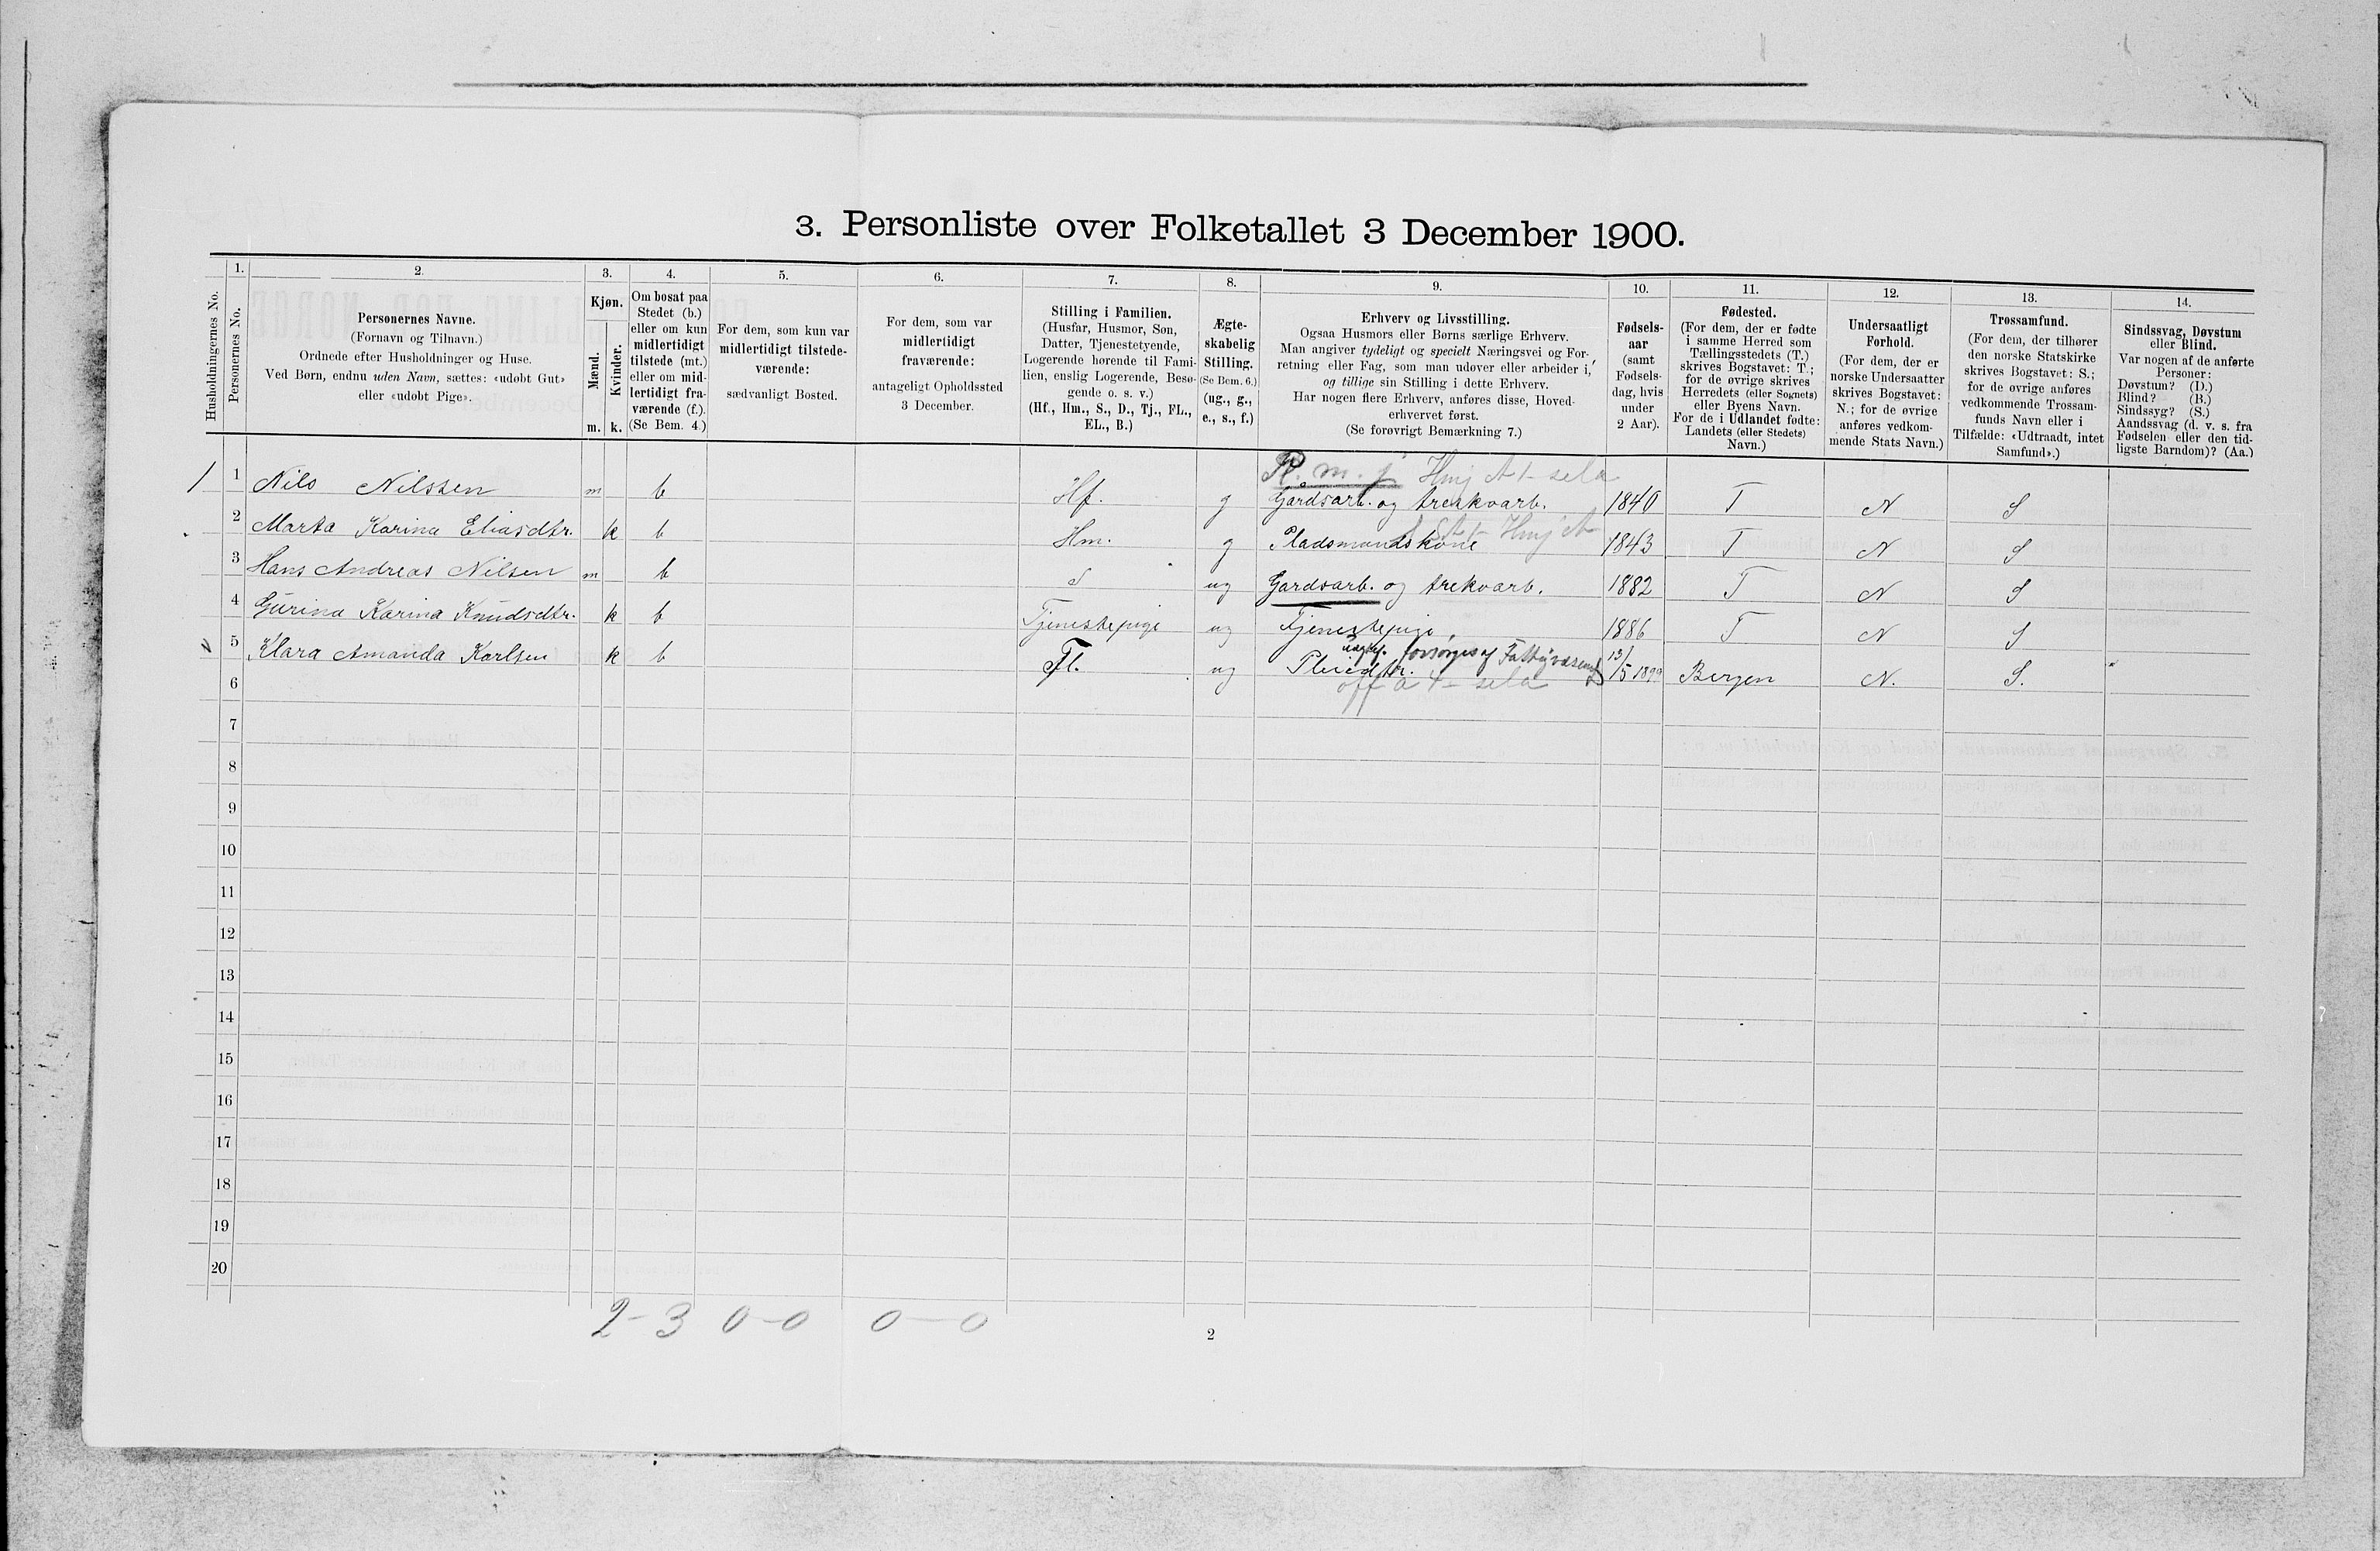 3. Personliste over Folketallet 3 December 1900.
Husholdningernes No.
1. Personernes No.
2. Personernes Navne.
(Fornavn og Tilnavn.)
Ordnede efter Husholdninger og Huse.
Ved Børn, endnu uden Navn, sættes: «udøbt Gut»
eller «udøbt Pige».
3. Kjøn.
Mænd. Kvinder.
m. k.
4. Om bosat paa
Stedet (b.)
eller om kun
midlertidigt
tilstede (mt.)
eller om mid-
lertidigt fra-
værende (f.).
(Se Bem. 4.)
5. For dem, som kun var
midlertidigt tilstede-
værende:
sædvanligt Bosted.
6. For dem, som var
midlertidigt
fraværende:
antageligt Opholdssted
3 December.
7. Stilling i Familien.
(Husfar, Husmor, Søn,
Datter, Tjenestetyende,
Logerende hørende til Fami-
lien, enslig Logerende, Besø-
gende o. s. v.)
(Hf., Hm., S., D., Tj., FL.,
EL., B.)
8. Ægte-
skabelig
Stilling.
(Se Bem. 6.)
(ug., g.,
e., s., f.)
9. Erhverv og Livsstilling.
Ogsaa Husmors eller Børns særlige Erhverv.
Man angiver tydeligt og specielt Næringsvei og For-
retning eller Fag, som man udøver eller arbeider i,
og tillige sin Stilling i dette Erhverv.
Har nogen flere Erhverv, anføres disse, Hoved-
erhvervet først.
(Se forøvrigt Bemærkning 7.)
10. Fødsels-
aar
(samt
Fødsels-
dag, hvis
under
2 Aar).
11. Fødested.
(For dem, der er fødte
i samme Herred som
Tællingsstedets (T.)
skrives Bogstavet: T.;
for de øvrige skrives
Herredets (eller Sognets)
eller Byens Navn.
For de i Udlandet fødte:
Landets (eller Stedets)
Navn.)
12. Undersaatligt
Forhold.
(For dem, der er
norske Undersaatter
skrives Bogstavet:
N.; for de øvrige
anføres vedkom-
mende Stats Navn.)
13. Trossamfund.
(For dem, der tilhører
den norske Statskirke
skrives Bogstavet: S.;
for de øvrige anføres
vedkommende Trossam-
funds Navn eller i
Tilfælde: «Udtraadt, intet
Samfund».)
14. Sindssvag, Døvstum
eller Blind.
Var nogen af de anførte
Personer:
Døvstum? (D.)
Blind? (B.)
Sindssyg? (S.)
Aandssvag (d. v. s. fra
Fødselen eller den tid-
ligste Barndom)? (Aa.)
1 1 Nils Nilssen m b Hf. g Gårdsarb. og 1840 T N S
2 Marta Karina Eliasdtr. k b Hm. g Pladsmandskone 1843 T N S
3 Hans Andreas Nilsen m b S ug Gardsarb. og trekvarb. 1882 T N S
4 Gurina Karina Knudsdtr. k b Tjenestepige ug Tjenestepige 1886 T N S
5 Klara Amanda Karlsen k b Fl. ug Pleiedtr. forsørges af Fattigvæsenet 13/5 1899 Bergen N. S.
6
7
8
9
10
11
12
13
14
15
16
17
18
19
20
2-3 0-0 0-0
2